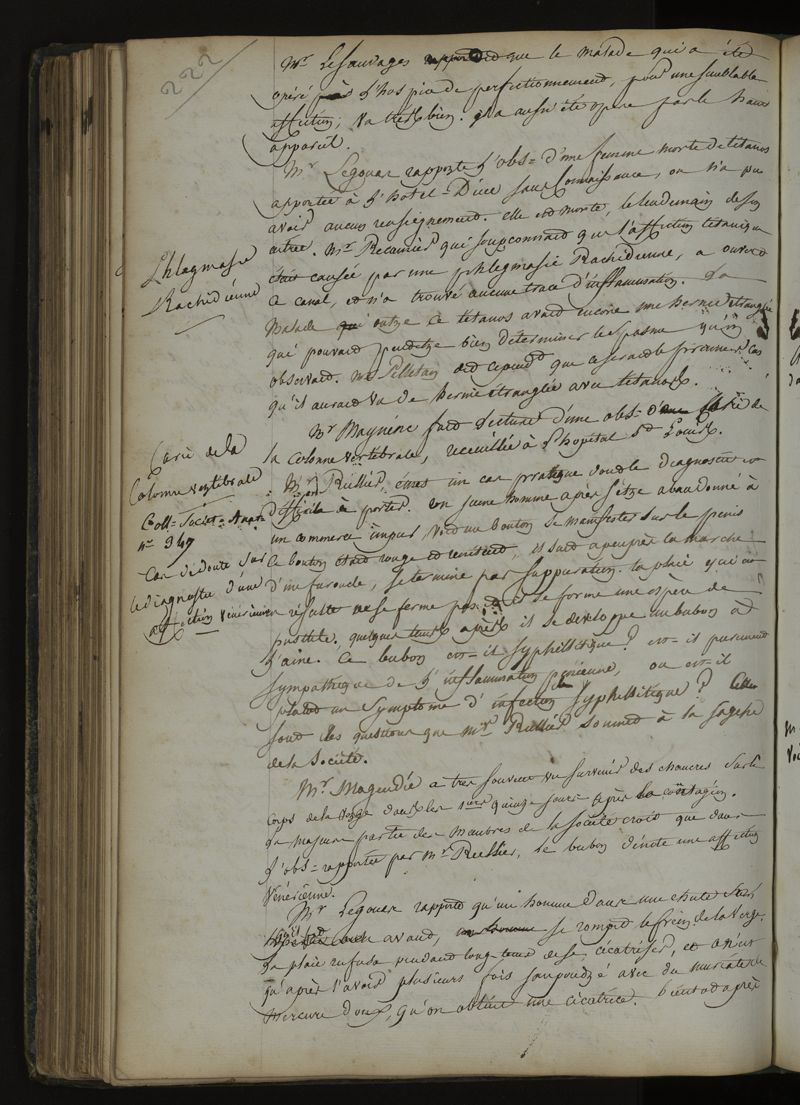 222
Mr. Lesauvages rapporte que le malade qui a été
opéré à l'hospice de perfectionnement, pour une semblable
affection, va très bien. Il a aussi été opéré par le haut
appareil.
Mr Legouas rapporte l'obs= d'une femme morte de tétanos
apportée à l'hotel-Dieu sans connaissance, on n'a pu
avoir aucun renseignement. elle est morte, le lendemain de son
entrée. Mr. Récamier qui soupçonnait que l'affection tétanique
Phlegmasie
Rachidienne
était causée par une phlegmasie Rachidienne, a ouvert
le canal, et n'a trouvé aucune trace d'inflammation. La
malade qui outre ce tétanos avait encore une hernie étranglée
qui pouvait peut-être bien déterminer le spasme qu'on
observait. Mr Pelletan dit cependt que ce serait le premier cas
qu'il aurait vu de hernie étranglée avec tétanos.
Carie de la
Colonne vertébrale
Coll= Societ= Anat=
n° 347
Mr Maynénc fait lecture d'une obs= Carie de
la colonne vertébrale, recueillie à l'hopital St Louis.
Cas de doute sur
le diagnostic d'une
affection vénérienne
Mr Rullier, émet un cas pratique dont le diagnostic est
difficile à porter. Un jeune homme après s'être abandonné à
un commerce impur, voit un bouton se manifester sur le penis
Ce bouton était rouge et renitent, il suit à peu près la marche
d'un furoncle, se termine par suppuration. la plaie qui en
résulte ne se ferme pas. Il se forme une espèce de
pustule. quelque tems après il se développe un bubon à
l'aine. Ce bubon est-il syphilitique? est-il purement
sympathique de l'inflammation penienne, ou est-il
plutôt un symptome d'infection syphillitique? Telles
sont les questions que Mr. Rullier soumet à la sagesse
de la Société.
Mr. Magendie a très souvent vu survenir des chancres sur le
corps de la verge dans les 1ers quinze jours après la contagion.
La majeure partie des membres de la société croit que dans
l'obs= rapportée par Mr. Rullier, le bubon dénote une affection
Vénérienne.
Mr Legouas rapporte qu'un homme dans une chute
avant, se rompit le frein de la verge.
La plaie refusa pendant long-tems de se cicatriser, et n'est
qu'après l'avoir plusieurs fois saupoudré avec du muriate de
mercure doux, qu'on obtint une cicatrice. bientôt après